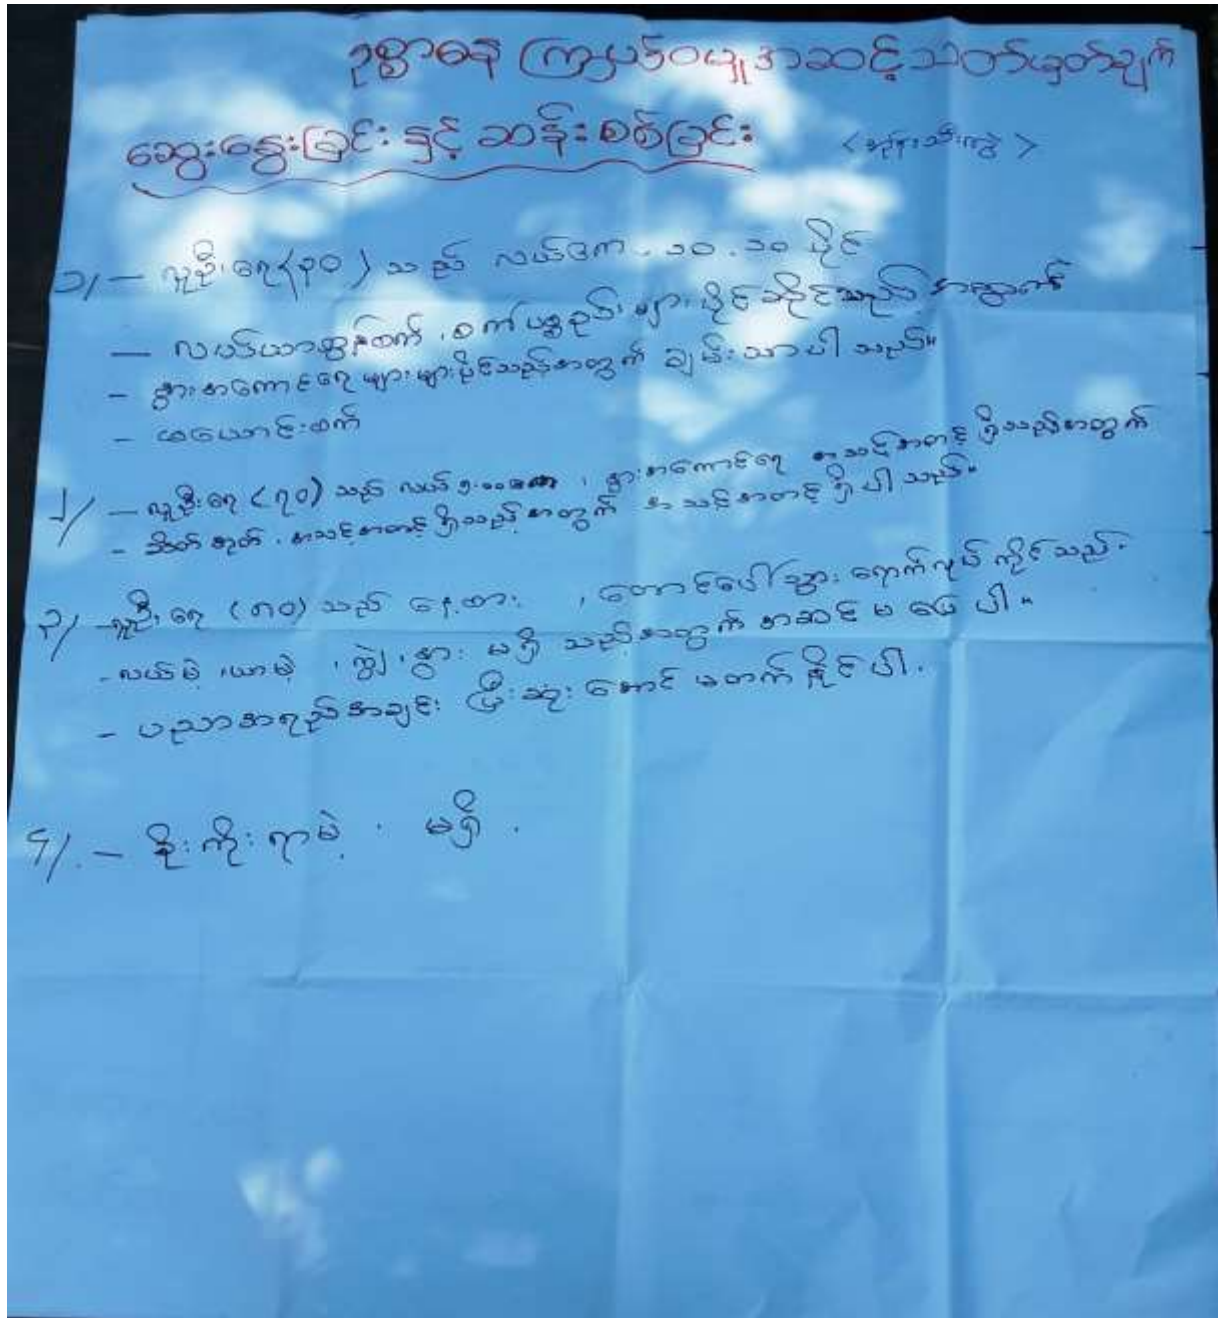 ဥစ္စာဓန ကြွယ်ဝမှု အဆင့်သတ်မှတ်ချက်
ဆွေးနွေးခြင်း နှင့် ဆန်းစစ်ခြင်း
၁/ — လူဦးရေ (၃၀) သည် လယ်ဧက ၁၀. ၁၀ ပိုင်
— လယ်ယာထွန်စက် ၊ စက်ပစ္စည်းများ ပိုင်ဆိုင်သည့် အတွက်
- နွားအကောင်ရေ များများပိုင်သည့်အတွက် ချမ်းသာပါ သည်။
၂/ — လူဦးရေ (၇၀) သည် လယ် ၊ နွားအကောင်ရေ အသင့်အတင့် ရှိသည့်အတွက်
- အသင့်အတင့် ရှိသည့်အတွက် အသင့်အတင့် ရှိပါသည်။
၃/ - လူဦးရေ (၈၀) သည် နေ့စား ၊ တောင်ပေါ်သွား ရောက်လုပ်ကိုင်သည်.
- လယ်မဲ့ ၊ ယာမဲ့ ၊ ကျွဲ ၊ နွား မရှိ သည့်အတွက် အဆင် မပြေ ပါ။
- ပညာအရည်အချင်း ပြီးဆုံး အောင် မတက် နိုင်ပါ.
၄/. — ခိုးကိုးရာမဲ့ . မရှိ .